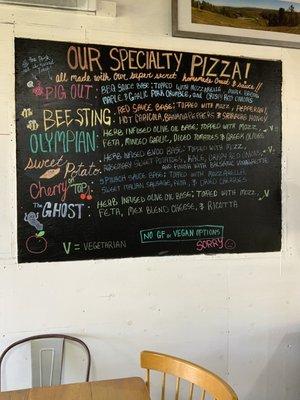 OUR SPECIALTY PIZZA!
all made with our super secret homemade crust & sauce!!
PIG OUT: BBQ SAUCE BASE; TOPPED WITH MOZZARELLA,
MAPLE & GARLIC PORK CRUMBLE, AND CRISPY RED ONIONS
BEE STING: RED SAUCE BASE; TOPPED WITH MOZZ, PEPPERONI,
HOT CAPICOLA, BANANA PEPPERS & SRIRACHA HONEY
OLYMPIAN: HERB INFUSED OLIVE OIL BASE; TOPPED WITH MOZZ, V
FETA, MINCED GARLIC, DICED TOMATOES & GREEK OLIVES
Sweet Potato: HERB INFUSED EVOO BASE; TOPPED WITH MOZZ,
ROSEMARY SWEET POTATOES, KALE, CRISPY RED ONIONS V
AND FINISH WITH BALSAMIC
Cherry Top: SAUCE BASE; TOPPED WITH MOZZARELLA,
SWEET ITALIAN SAUSAGE, FETA, & DRIED CHERRIES
The GHOST: HERB INFUSED OLIVE OIL BASE; TOPPED WITH MOZZ, V
FETA, MEX BLEND CHEESE, & RICOTTA
V = VEGETARIAN
NO GF or VEGAN OPTIONS
SORRY